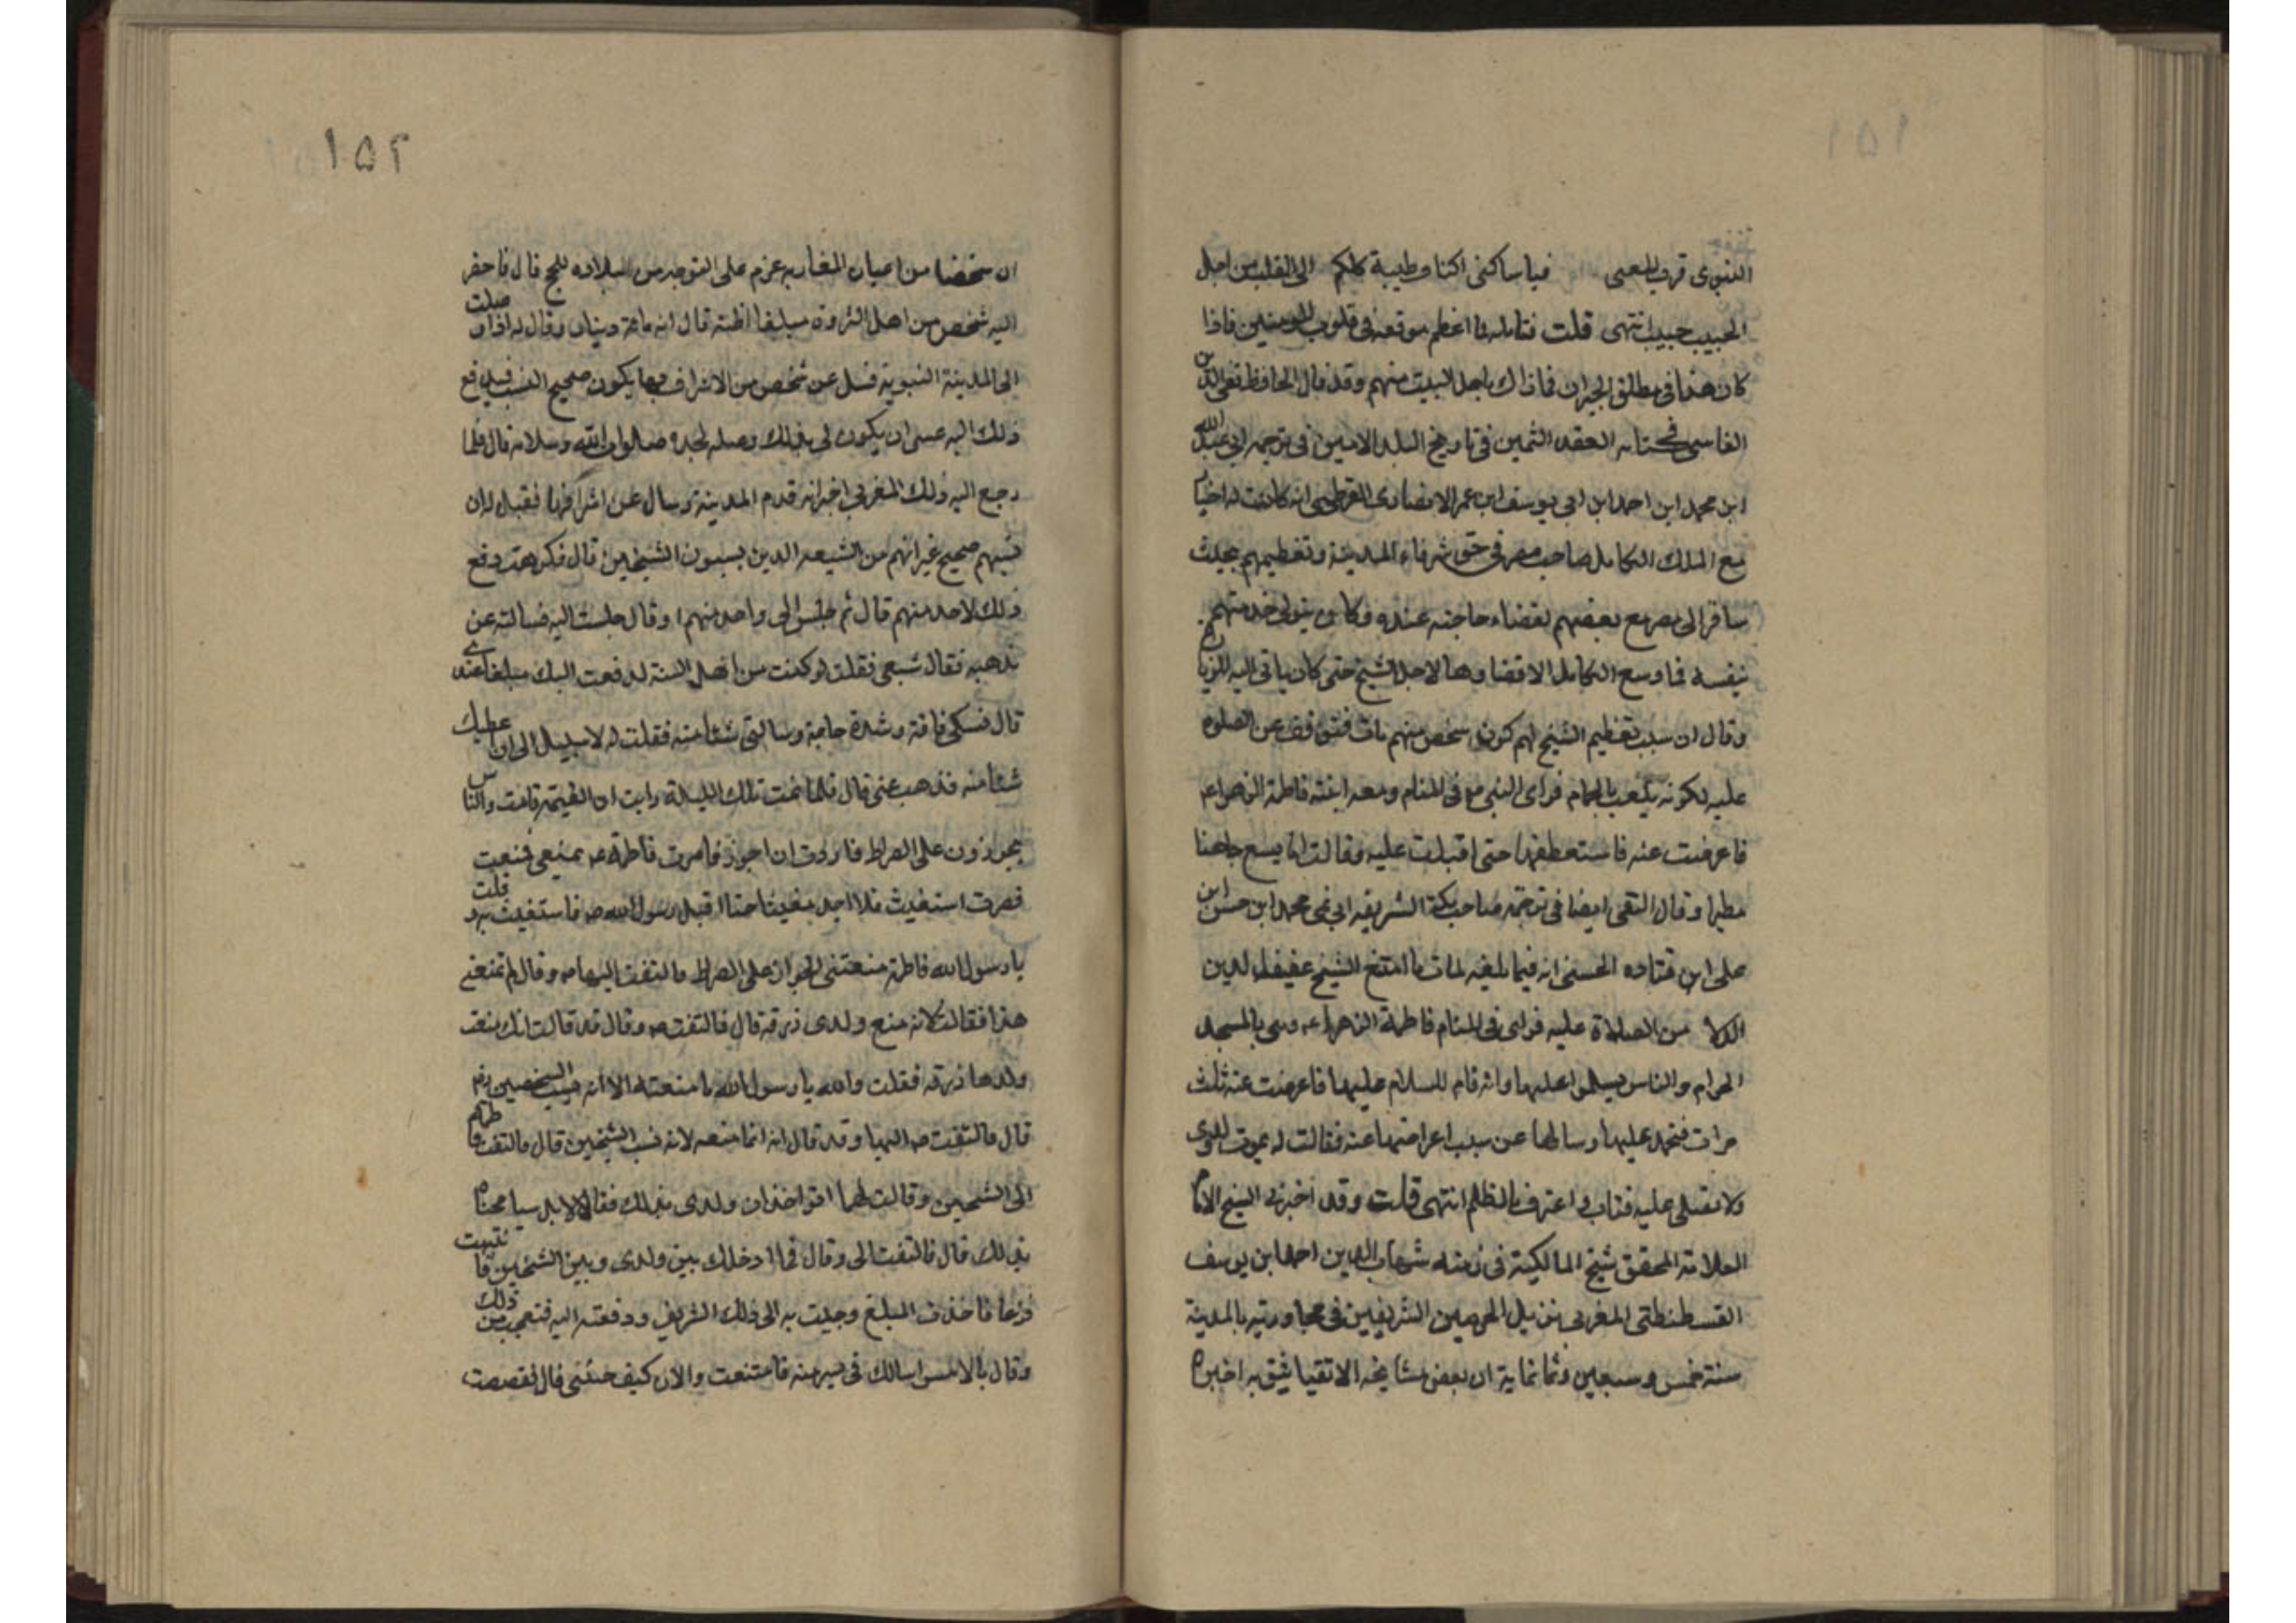 ١٥١
النبوى قرف للمعنى فيا ساكنى اكناف طيبة كلكم الى القلب من اجل
الحبيب حبيب انتهى قلت فتامله ما اعظم موقعه فى قلوب المومنين فاذا
كان هذا فى مطلق الجيران فما ذاك باهل البيت منهم وقد قال الحافظ تقى الدين
الفاسى فى كتابه العقد الثمين فى تاريخ البلد الامين فى ترجمه ابى عبد الله
ابن محمد ابن احمد ابن ابى يوسف ابن عمر الانصارى القرطبى انه كانت له اخبار
مع الملك الكامل صاحب مصر فى حق شرفاء المدينة وتعظيمهم بحيث
سافر الى مصر مع بعضهم لقضاء حاجته عنده وكان يتولى خدمتهم
بنفسه فما وسع الكامل الا قضاوها لاجل الشيخ حتى كان ياتى اليه للزيارة
وقال ان سبب تعظيم الشيخ لهم كون شخص منهم مات فتوقف عن الصلوه
عليه لكونه يلعب بالحمام فراى النبى ص فى المنام ومعه ابنته فاطمة الزهراء
فاعرضت عنه فاستعطفها حتى اقبلت عليه وقالت اما يسع جاهنا
مطيرا وقال التقى ايضا فى ترجمة صاحب مكة الشريفه ابى نمى محمد ابن حسن ابن
على ابن قتاده الحسنى انه فيما بلغنه لمات ما امتنع الشيخ عفيف الدين
الدلا من الصلاة عليه فراى فى المنام فاطمة الزهراء وهى بالمسجد
الحرام والناس يسلموا عليها وانه قام للسلام عليها فاعرضت عنه ثلث
مرات فتحمد عليها وسالها عن سبب اعراضها عنه فقالت له يموت ولدى
ولا تصلى عليه فتاب واعترف بالظلم انتهى قلت وقد اخبرنى الشيخ الامام
العلامة المحقق شيخ المالكية فى زمنه شهاب الدين احمد ابن يوسف
القسطنطنى المغربى نزيل الحرمين الشريفين فى مجاورته بالمدينة
سنة خمس وسبعين وثمانماية ان بعض مشايخه الاتقيا يثق به اخبره
١٥٢
ان شخصا من اعيان المغاربه عزم على التوجه من بلاده للحج قال فاحضر
اليه شخص من اهل الثروة مبلغا اظنه قال انه مائة دينار وقال له اذا وصلت
الى المدينة النبوية فسل عن شخص من الاشراف بها يكون صحيح النسب فيدفع
ذلك اليه عسى ان يكون لى بذلك وصله لجده صلوات الله وسلامه قال فلما
رجع اليه ذلك المغربى اخبر انه قدم المدينة وسال عن اشرافها فقيل له ان
نسبهم صحيح غير انهم من الشيعه الذين يسبون الشيخين قال فكرهت دفع
ذلك لاحد منهم قال ثم جلس الى واحد منهم او قال جلست اليه فسالته عن
مذهبه فقال شيعى فقلت لو كنت من اهل السنة لدفعت اليك مبلغا عندى
قال فشكى فاقة وشدة حاجة وسالنى شئا منه فقلت له لا سبيل الى ان اعطيك
شئا منه فذهب عنى قال فلما نمت تلك الليلة رايت ان القيمة قامت والناس
يجوزون على الصراط فاردت ان اجوز فامرت فاطمة بمنعى فمنعت
فصرت استغيث فلا اجد مغيثا حتا اقبل رسول الله ص فاستغيث به وقلت
يا رسول الله فاطمة منعتنى الجواز على الصراط فالتفت اليها ص وقال لم تمنعى
هذا فقالت لانه منع ولدى رزقه قال فالتفت ص وقال قد قالت انك منعت
ولدها رزقه فقلت والله يا رسول الله ما منعته الا انه يسب الشيخين رض
قال فالتفت ص اليها وقد قال انه انما منعه لانه يسب الشيخين قال فالتفت فاطمه
الى الشيخين وقالت لهما اتواخذان ولدى بذلك فقالا لا بل سامحناه
بذلك قال فالتفت الى وقال فما ادخلك بين ولدى وبين الشيخين فانتبهت
فزعا فاخذت المبلغ وجيت به الى ذلك الشريف ودفعته اليه فتعجب من ذلك
وقال بالامس اسالك فى يسير منه فامتنعت والان كيف جئتنى قال فقصصت